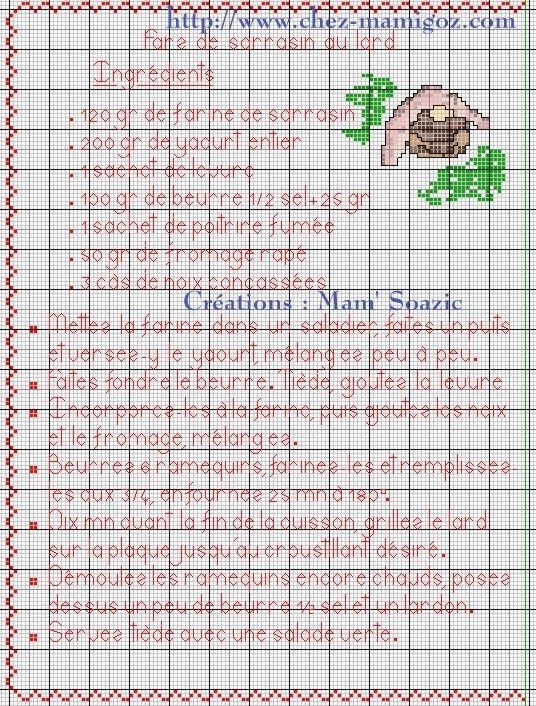 http://www.chez-mamigoz.com
Fars de sarrasin au lard
Ingrédients
. 120 gr de farine de sarrasin
. 200 gr de yaourt entier
. 1 sachet de levure
. 130 gr de beurre 1/2 sel+25 gr
. 1 sachet de poitrine fumée
. 50 gr de fromage rapé
. 3 càs de noix concassées
Créations : Mam' Soazic
Mettez la farine dans un saladier, faites un puits
et versez-y le yaourt, mélangez peu à peu.
Faites fondre le beurre. Tiède, ajoutez la levure
Incorporez-les à la farine, puis ajoutez les noix
et le fromage, mélangez.
Beurrez 6 ramequins, farinez-les et remplissez-
les aux 3/4, enfournez 25 mn à 180°.
Dix mn avant la fin de la cuisson, grillez le lard
sur la plaque jusqu'au croustillant désiré.
Démoulez les ramequins encore chauds, posez
dessus un peu de beurre 1/2 sel et un lardon.
Servez tiède avec une salade verte.